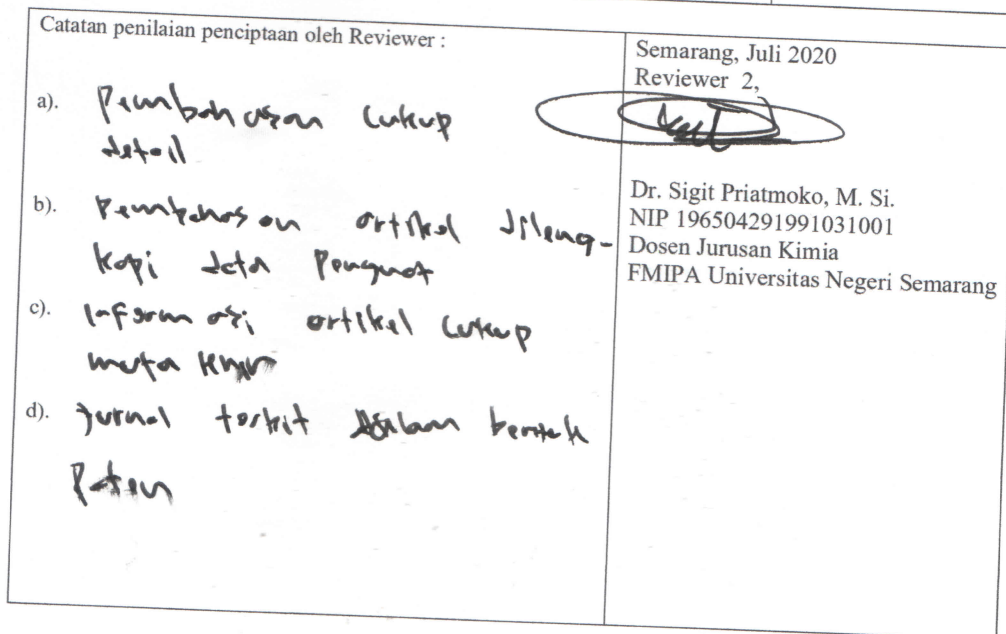 Catatan penilaian penciptaan oleh Reviewer :
a). Pembahasan cukup
detail
b). Pembahasan artikel dileng-
kapi data penguat
c). Informasi artikel cukup
mutakhir
d). Jurnal terbit dalam bentuk
Paten
Semarang, Juli 2020
Reviewer 2,
Dr. Sigit Priatmoko, M. Si.
NIP 196504291991031001
Dosen Jurusan Kimia
FMIPA Universitas Negeri Semarang